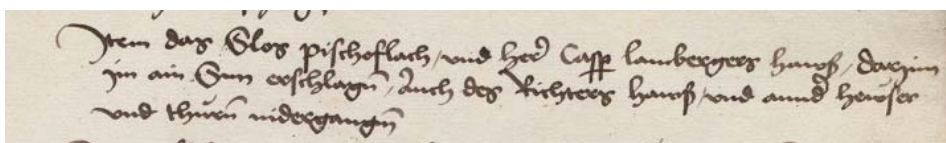 Item das Slos pischoflach, und her Casp lambergers hawß, darinn
im ain Sun erschlagn, Auch des Richters hawß, und annd hewser
und thurn nidergangn